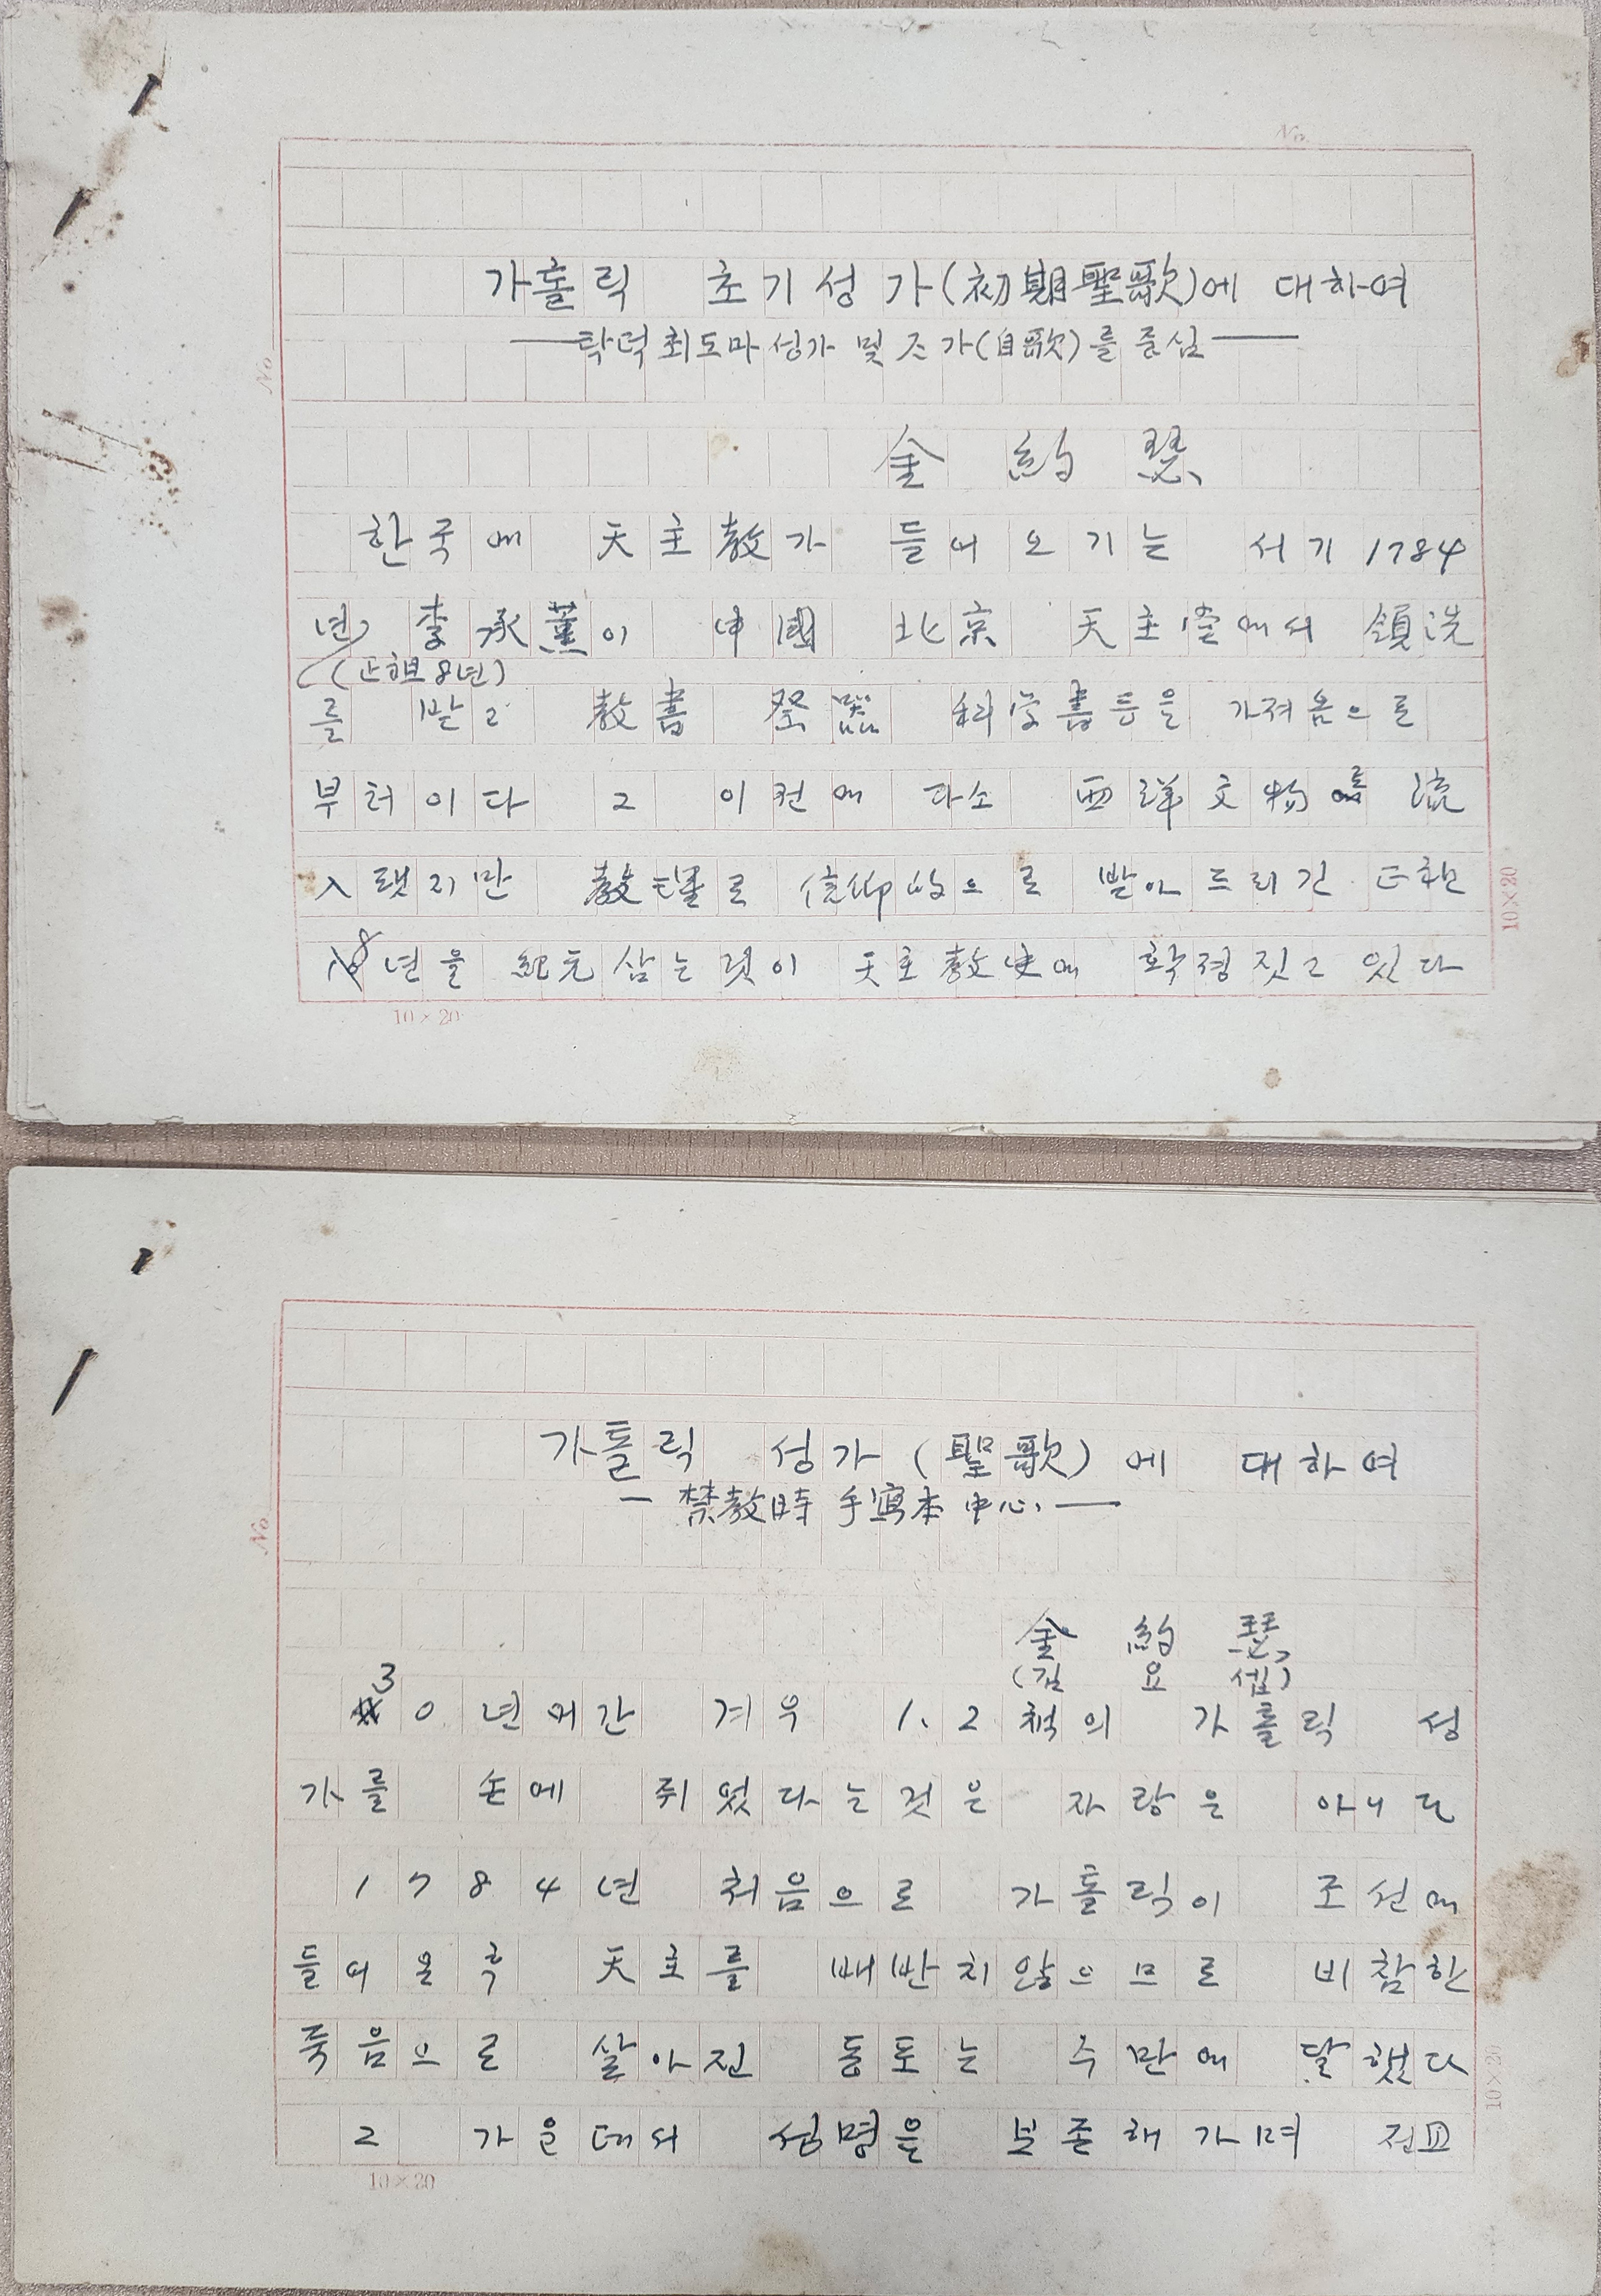 No.
가톨릭 초기성가(初期聖歌)에 대하여
——탁덕최도마성가 및 ᄌ가(自歌)를 중심——
No
金 約 瑟
한국에 天主教가 들어오기는 서기 1784
년 李承薰이 中國 北京 天主堂에서 領洗
(正祖8년)
를 받고 教書 祭器 科学書등을 가져옴으로
부터이다 그 이전에 다소 西洋文物이 流
入됐지만 教理로 信仰的으로 받아드리긴 正祖
8년을 紀元삼는것이 天主教史에 확정짓고 있다
10×20
10×20
가톨릭 성가 (聖歌)에 대하여
— 禁教時 手寫本 中心 —
No
金 約 瑟
(김 요 셉)
30년여간 겨우 1、2책의 가톨릭 성
가를 손에 쥐었다는것은 자랑은 아니다
1784년 처음으로 가톨릭이 조선에
들어온후 天主를 배반치않으므로 비참한
죽음으로 살아진 동포는 수만에 달했다
그 가운데서 성명을 보존해가며 전교
10×20
10×20